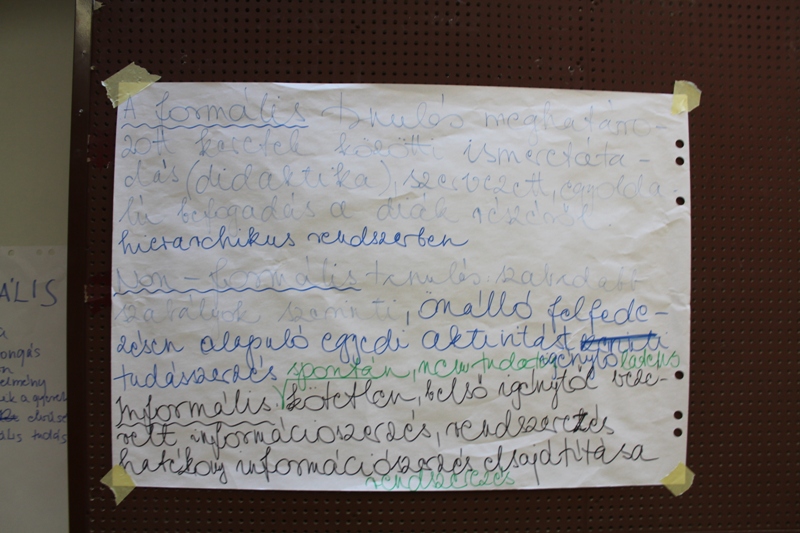 A formális tanulás meghatáro-
zott keretek közötti ismeretáta-
dás (didaktika), szervezett, egyolda-
lú befogadás a diák részéről.
hierarchikus rendszerben
Non-formális tanulás szabadabb
szabályok szerinti, önálló felfede-
zésen alapuló egyedi aktivitást
tudászerzés spontán, nem tudatos
Informális kötetlen, belső igénytől veze-
relt információszerzés, rendszerezés
hatékony információszerzés elsajátítása
rendszerezés
ÁLIS